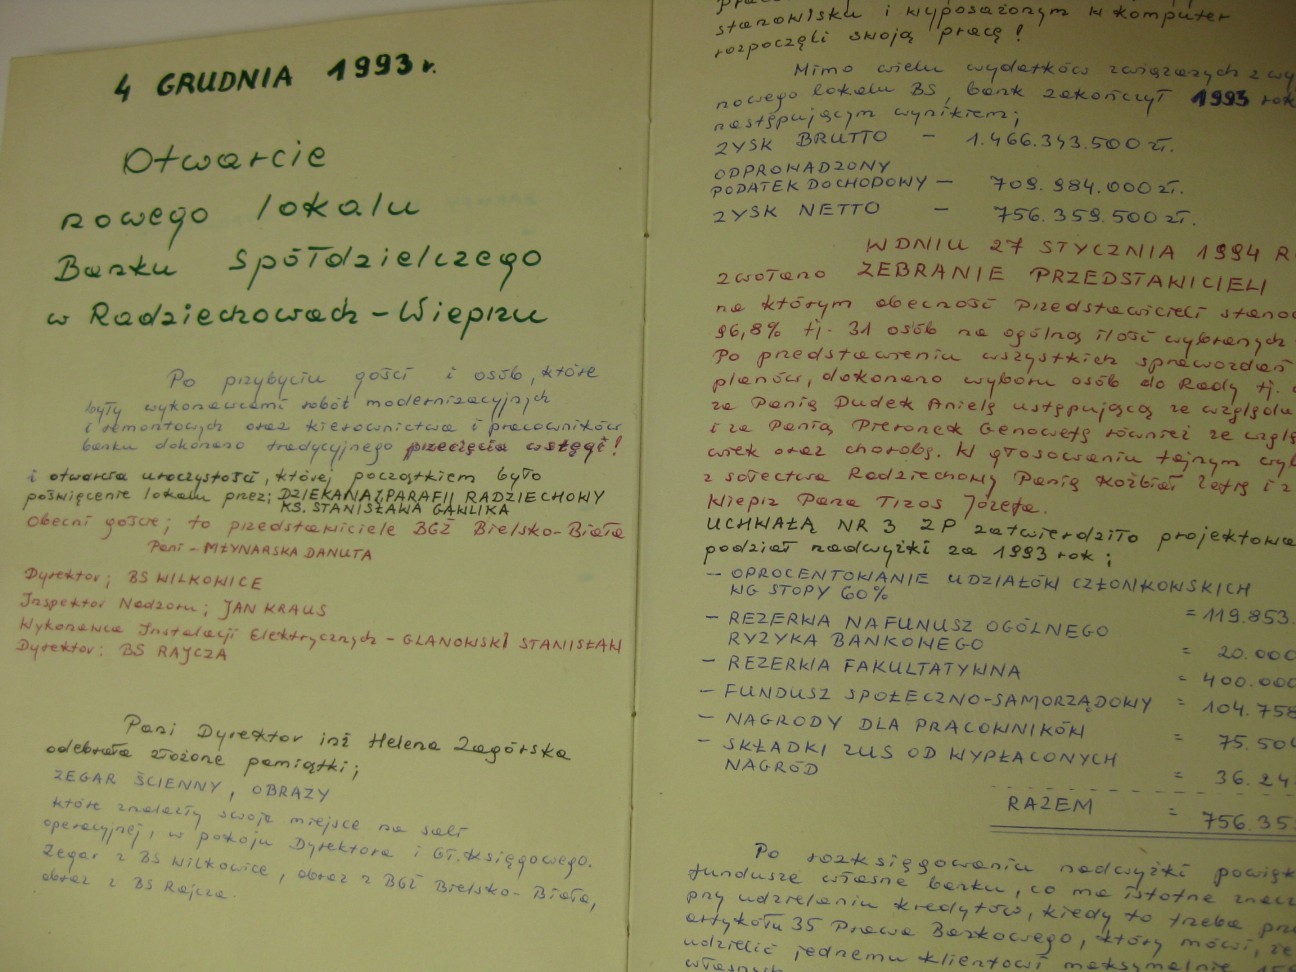 4 GRUDNIA 1993 r.
Otwarcie
nowego lokalu
Banku Spółdzielczego
w Radziechowach-Wieprzu
Po przybyciu gości i osób, które
były wykonawcami robót modernizacyjnych
i remontowych oraz kierownictwa i pracowników
banku dokonano tradycyjnego przecięcia wstęgi!
i otwarcia uroczystości, której początkiem było
poświęcenie lokalu przez; DZIEKANA PARAFII RADZIECHOWY
KS. STANISŁAWA GAWLIKA
Obecni goście; to przedstawiciele BGŻ Bielsko-Biała
Pani - MŁYNARSKA DANUTA
Dyrektor; BS WILKOWICE
Inspektor Nadzoru; JAN KRAUS
Wykonawca Instalacji Elektrycznych - GLANOWSKI STANISŁAW
Dyrektor: BS RAJCZA
Pani Dyrektor inż Helena Zagórska
odebrała złożone pamiątki;
ZEGAR ŚCIENNY, OBRAZY
które znalazły swoje miejsce na sali
operacyjnej, w pokoju Dyrektora i Gł. Księgowego.
Zegar z BS Wilkowice, obraz z BGŻ Bielsko-Biała,
obraz z BS Rajcza.
stanowisku i wyposażonym w komputer
rozpoczęli swoją pracę!
Mimo wielu wydatków związanych z wy
nowego lokalu BS, bank zakończył 1993 rok
następującym wynikiem;
ZYSK BRUTTO - 1.466.343.500 zł.
ODPROWADZONY
PODATEK DOCHODOWY - 709.984.000 zł.
ZYSK NETTO - 756.359.500 zł.
W DNIU 27 STYCZNIA 1994 R
zwołano ZEBRANIE PRZEDSTAWICIELI
na którym obecność Przedstawicieli stano
96,8% tj. 31 osób na ogólną ilość wybranych
Po przedstawieniu wszystkich sprawozdań
planów, dokonano wyboru osób do Rady tj.
za Panią Dudek Anielę ustępującą ze względu
i za Panią Pieronek Genowefę również ze wzglę
wiek oraz chorobę. W głosowaniu tajnym wy
z sołectwa Radziechowy Panią Koźbiał Zofię i z
Wieprz Pana Tiros Józefa.
UCHWAŁĄ NR 3 ZP zatwierdziło projektowa
podział nadwyżki za 1993 rok;
- OPROCENTOWANIE UDZIAŁÓW CZŁONKOWSKICH
WG STOPY 60% = 119.853.
- REZERWA NA FUNUSZ OGÓLNEGO
RYZYKA BANKOWEGO = 20.000
- REZERWA FAKULTATYWNA = 400.000
- FUNDUSZ SPOŁECZNO-SAMORZĄDOWY = 104.758
- NAGRODY DLA PRACOWNIKÓW = 75.504
- SKŁADKI ZUS OD WYPŁACONYCH
NAGRÓD = 36.24
RAZEM = 756.35
Po rozksięgowaniu nadwyżki powięk
fundusze własne banku, co ma istotne znacz
przy udzielaniu kredytów, kiedy to trzeba prze
artykułu 35 Prawa Bankowego, który mówi, że
udzielić jednemu klientowi maksymalnie 15
własnych